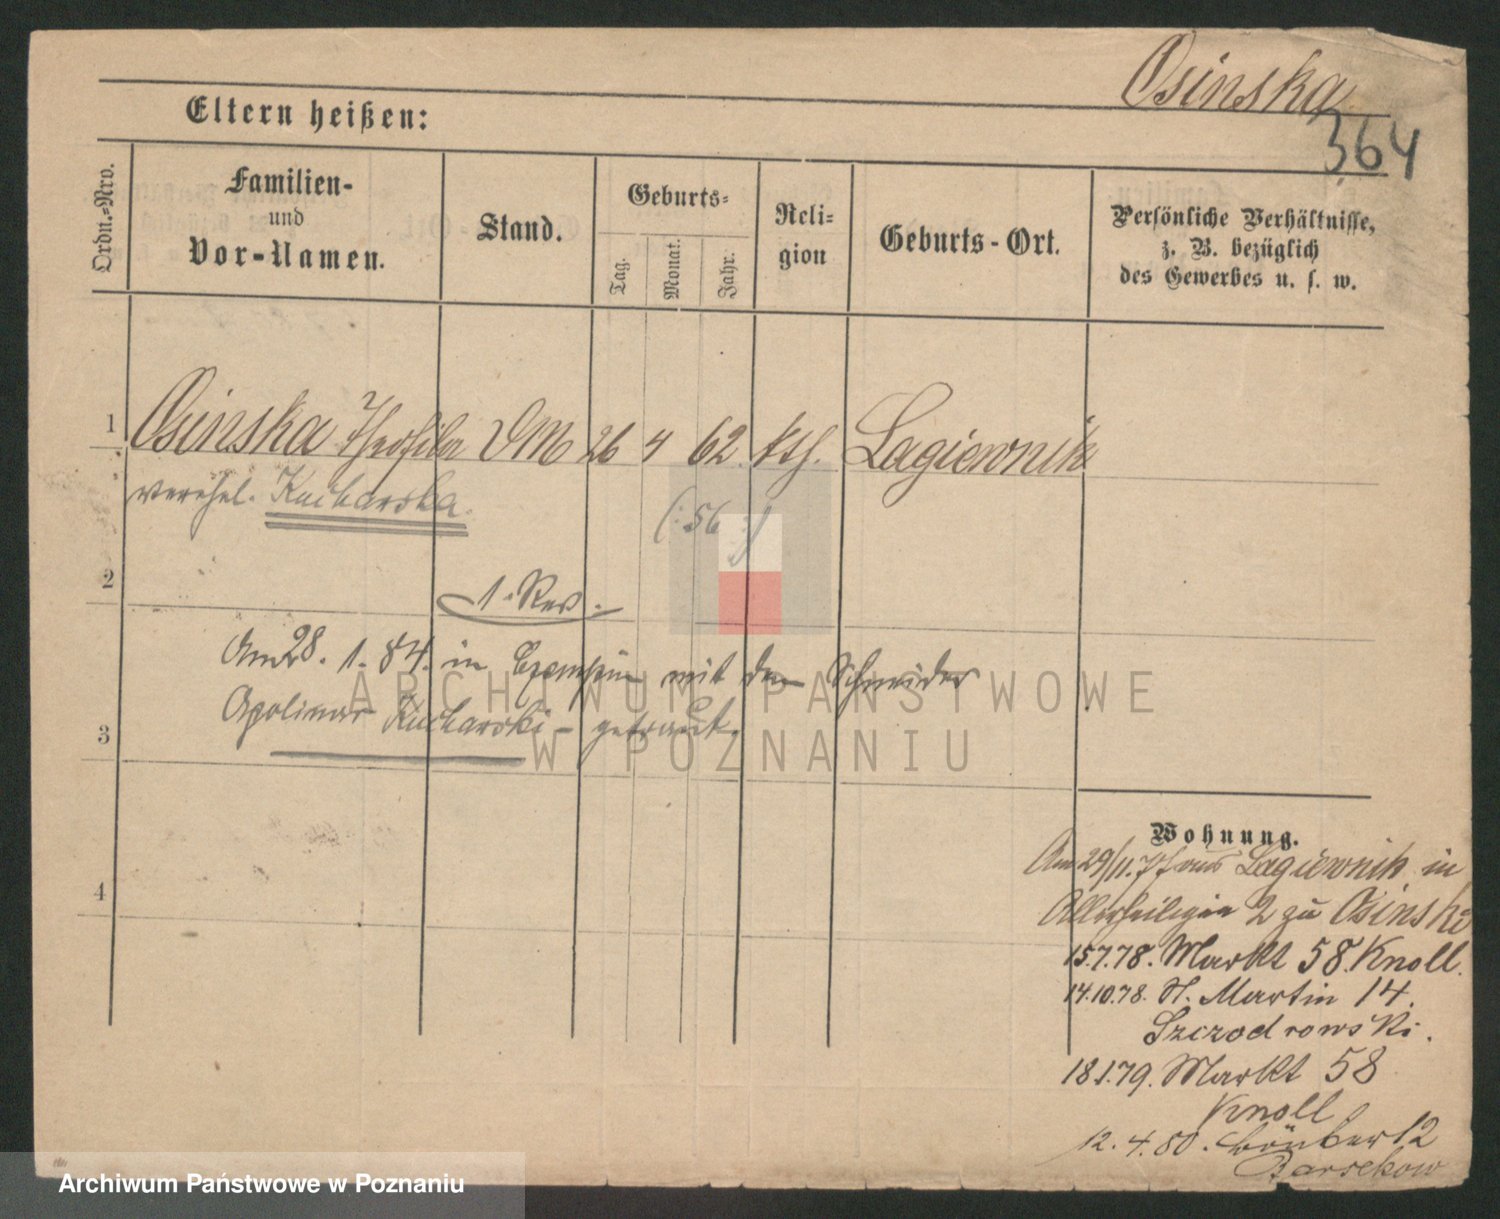 Osinska
364
Eltern heißen:
Ordn.=Nro.
Familien-
und
Vor-Namen.
Stand.
Geburts=
Tag.
Monat.
Jahr.
Reli=
gion
Geburts-Ort.
Persönliche Verhältnisse,
z. B. bezüglich
des Gewerbes u. s. w.
1 Osinska Theofila DM 26 4 62 kth. Lagiewnik
verehel. Kucharska.
(:56:)
2
1. Rev.
Am 28. 1. 84. in mit dem Schneider
Apolinar Kucharski - getraut.
3
4
Wohnung.
Am 29/11.77 aus Lagiewnik in
Allerheiligen 2 zu Osinski
15.7.78. Markt 58. Knoll.
14.10.78. St. Martin 14.
Szczodrowski.
18.1.79. Markt 58
Knoll
12.4.80. 12
Barsekow
ARCHIWUM PAŃSTWOWE
W POZNANIU
Archiwum Państwowe w Poznaniu